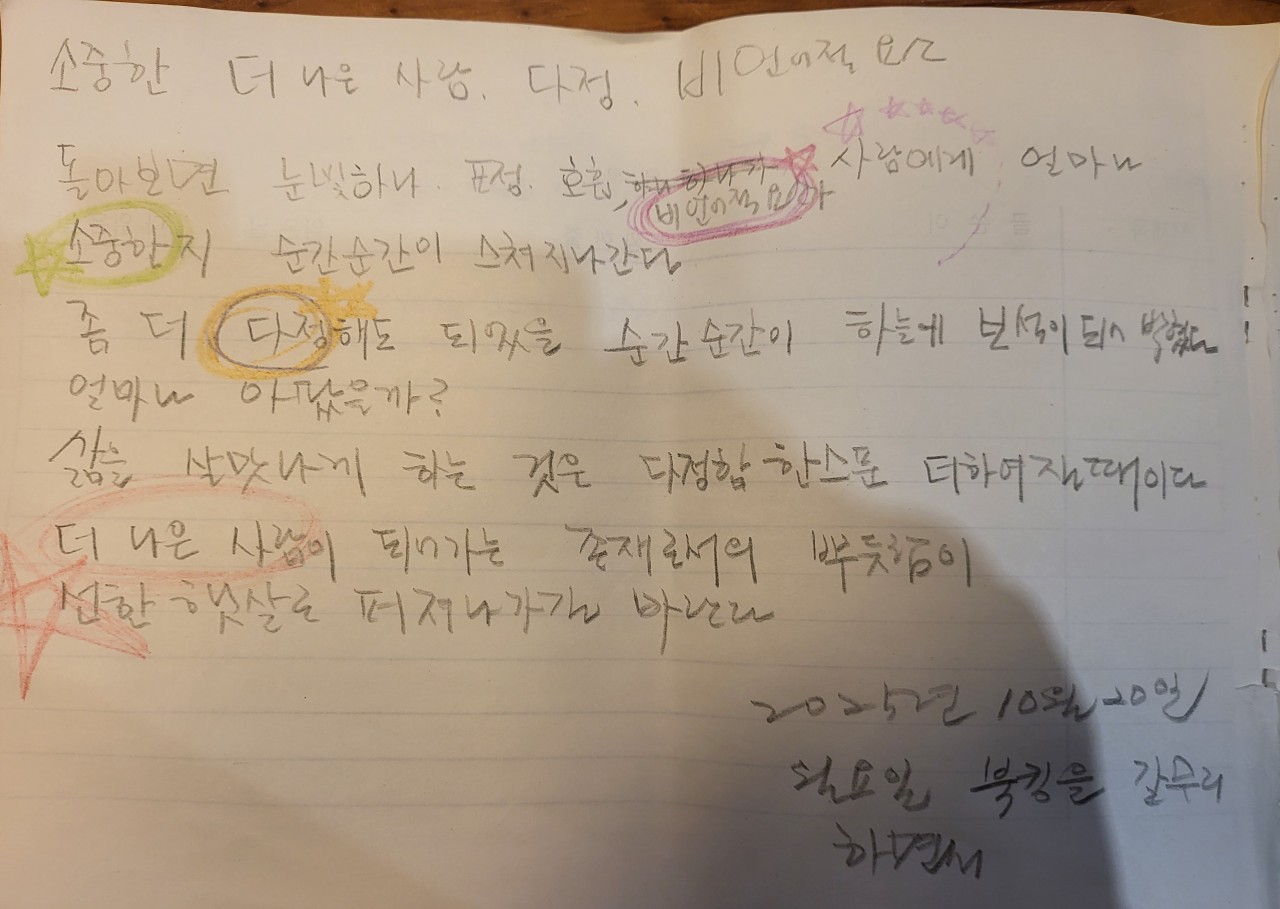 소중한 더 나은 사람. 다정. 비언어적 요소
돌아보면 눈빛하나. 표정. 호흡, 하나하나가 사람에게 얼마나
비언어적 요소가
소중한지 순간순간이 스쳐지나간다
좀 더 다정해도 되었을 순간순간이 하늘에 보석이 되어 박혔다
얼마나 아팠을까?
삶을 살맛나게 하는 것은 다정함 한스푼 더하여질때이다
더 나은 사람이 되어가는 존재로서의 뿌듯함이
선한 햇살로 퍼져나가길 바란다
2025년 10월 20일
월요일 북킹을 갈무리
하면서